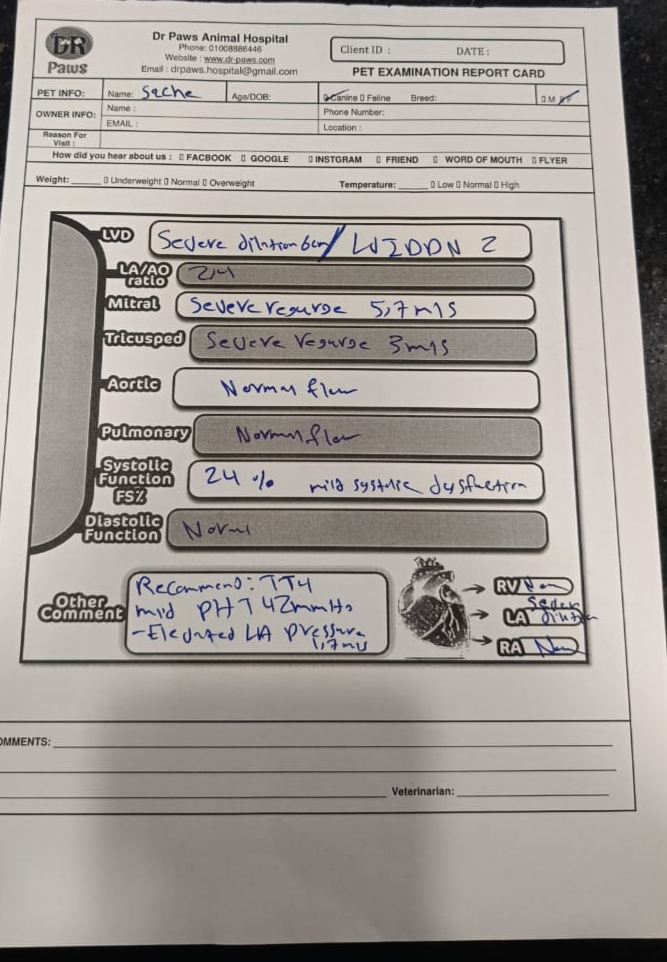 DR
Paws
Dr Paws Animal Hospital
Phone: 01008886446
Website : www.dr-paws.com
Email : drpaws.hospital@gmail.com
Client ID : DATE :
PET EXAMINATION REPORT CARD
PET INFO: Name: Sache Age/DOB: Canine Feline Breed: M F
OWNER INFO: Name : Phone Number:
EMAIL : Location :
Reason For
Visit :
How did you hear about us : FACBOOK GOOGLE INSTGRAM FRIEND WORD OF MOUTH FLYER
Weight: Underweight Normal Overweight Temperature: Low Normal High
LVD Severe / LVIDDN 2
LA/AO
ratio 2,4
Mitral Severe regurge 5,7 m/s
Tricusped Severe regurge 3 m/s
Aortic Normal flow
Pulmonary Normal flow
Systolic
Function
FS% 24 % mild systolic dysfuction
Diastolic
Function Normal
Other
Comment
Recommend: TT4
mild PHT 42mmHg
- Elevated LA pressure
1,7 m/s
RV
LA Severe dilation
RA
OMMENTS:
Veterinarian: